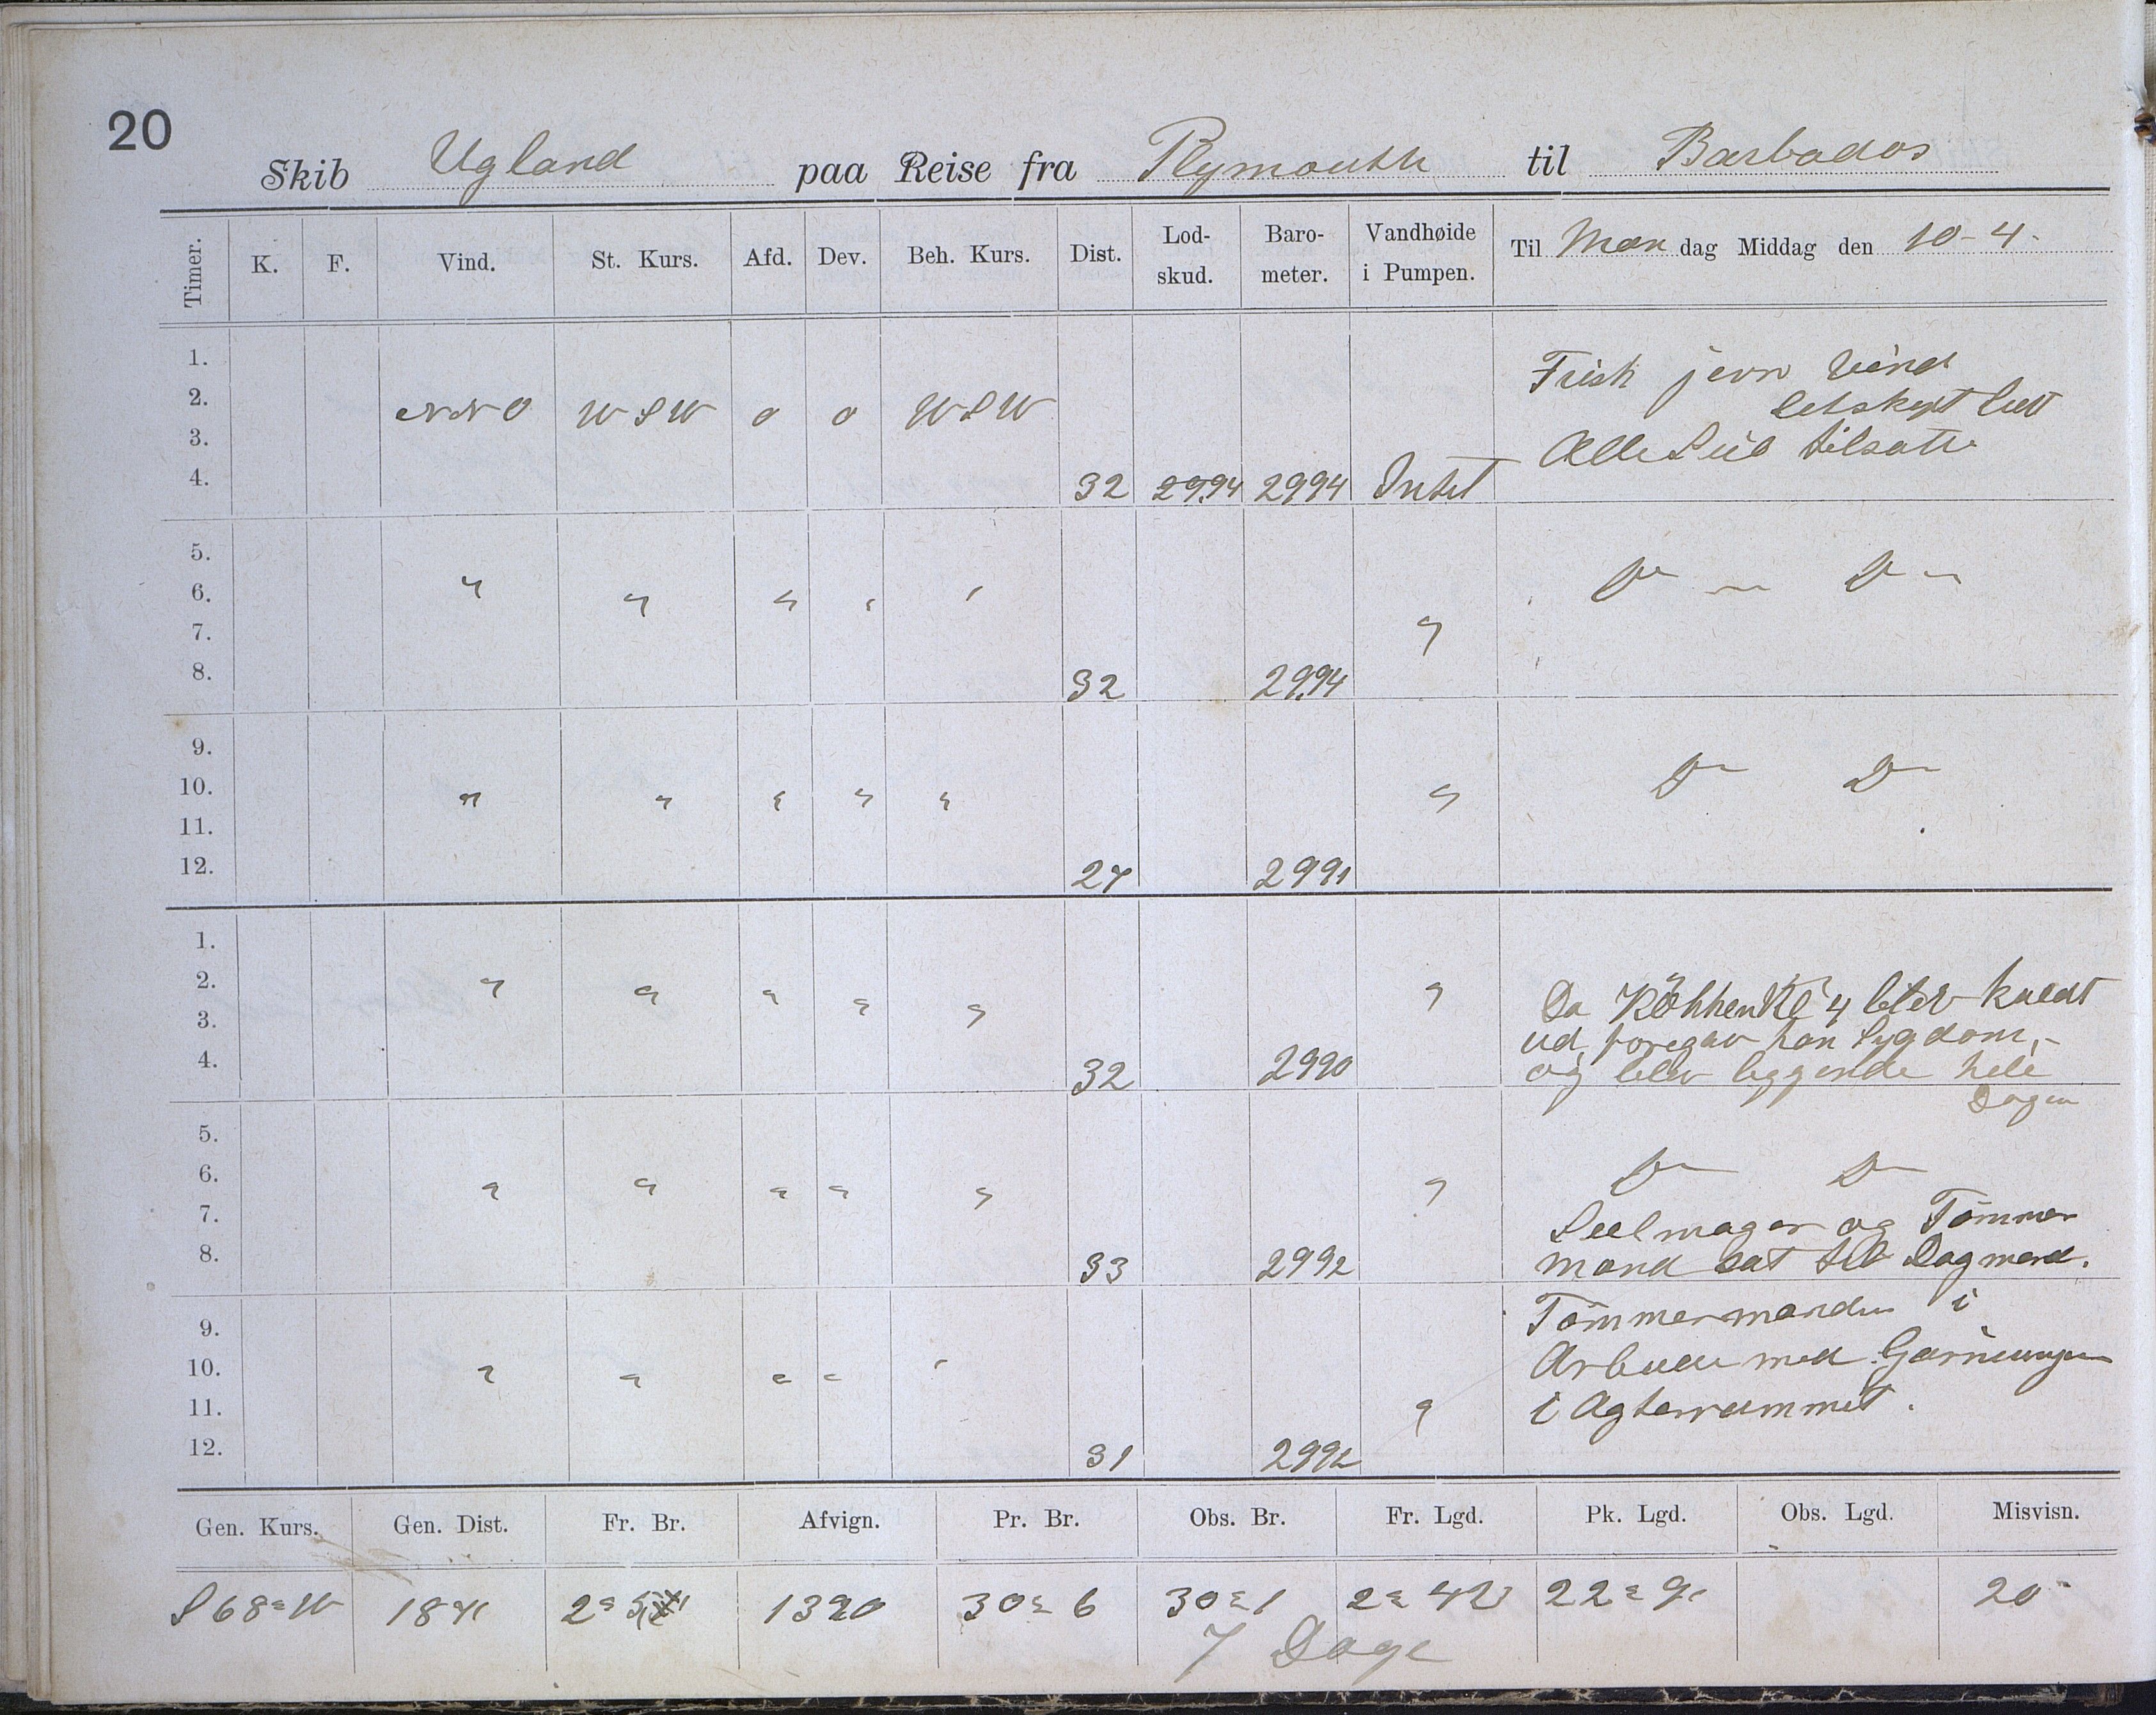 20
Skib Ugland paa Reise fra Plymouth til Barbados
Timer. K. F. Vind. St. Kurs. Afd. Dev. Beh. Kurs. Dist. Lod-skud. Baro-meter. Vandhøide i Pumpen. Til Man dag Middag den 10-4-
1. Frisk jevn Vind
2. NNO WSW 0 0 WSW letskyet luft
3. Alle Seil tilsatte
4. 32 29.94 2994 Intet
5.
6. " " " " " Do — Do —
7. "
8. 32 29.94
9.
10. " " " " " " Do Do
11.
12. 27 2991
1.
2. " " " " " " Da kl 4 blev kaldt
3. ud, foregav han Sygdom,-
4. 32 2990 og blev liggende hele
Dagen
5.
6. " " " " " " Do Do
7. Seelmager og Tømmer
8. 33 2992 mand sat til Dagmænd.
9. Tømmermanden i
10. " " " " " Arbeide med
11. " i Agterrummet.
12. 31 2992
Gen. Kurs. Gen. Dist. Fr. Br. Afvign. Pr. Br. Obs. Br. Fr. Lgd. Pk. Lgd. Obs. Lgd. Misvisn.
S 68° W 30° 6 30° 1 2° 42 22° 9 20
7 Dage